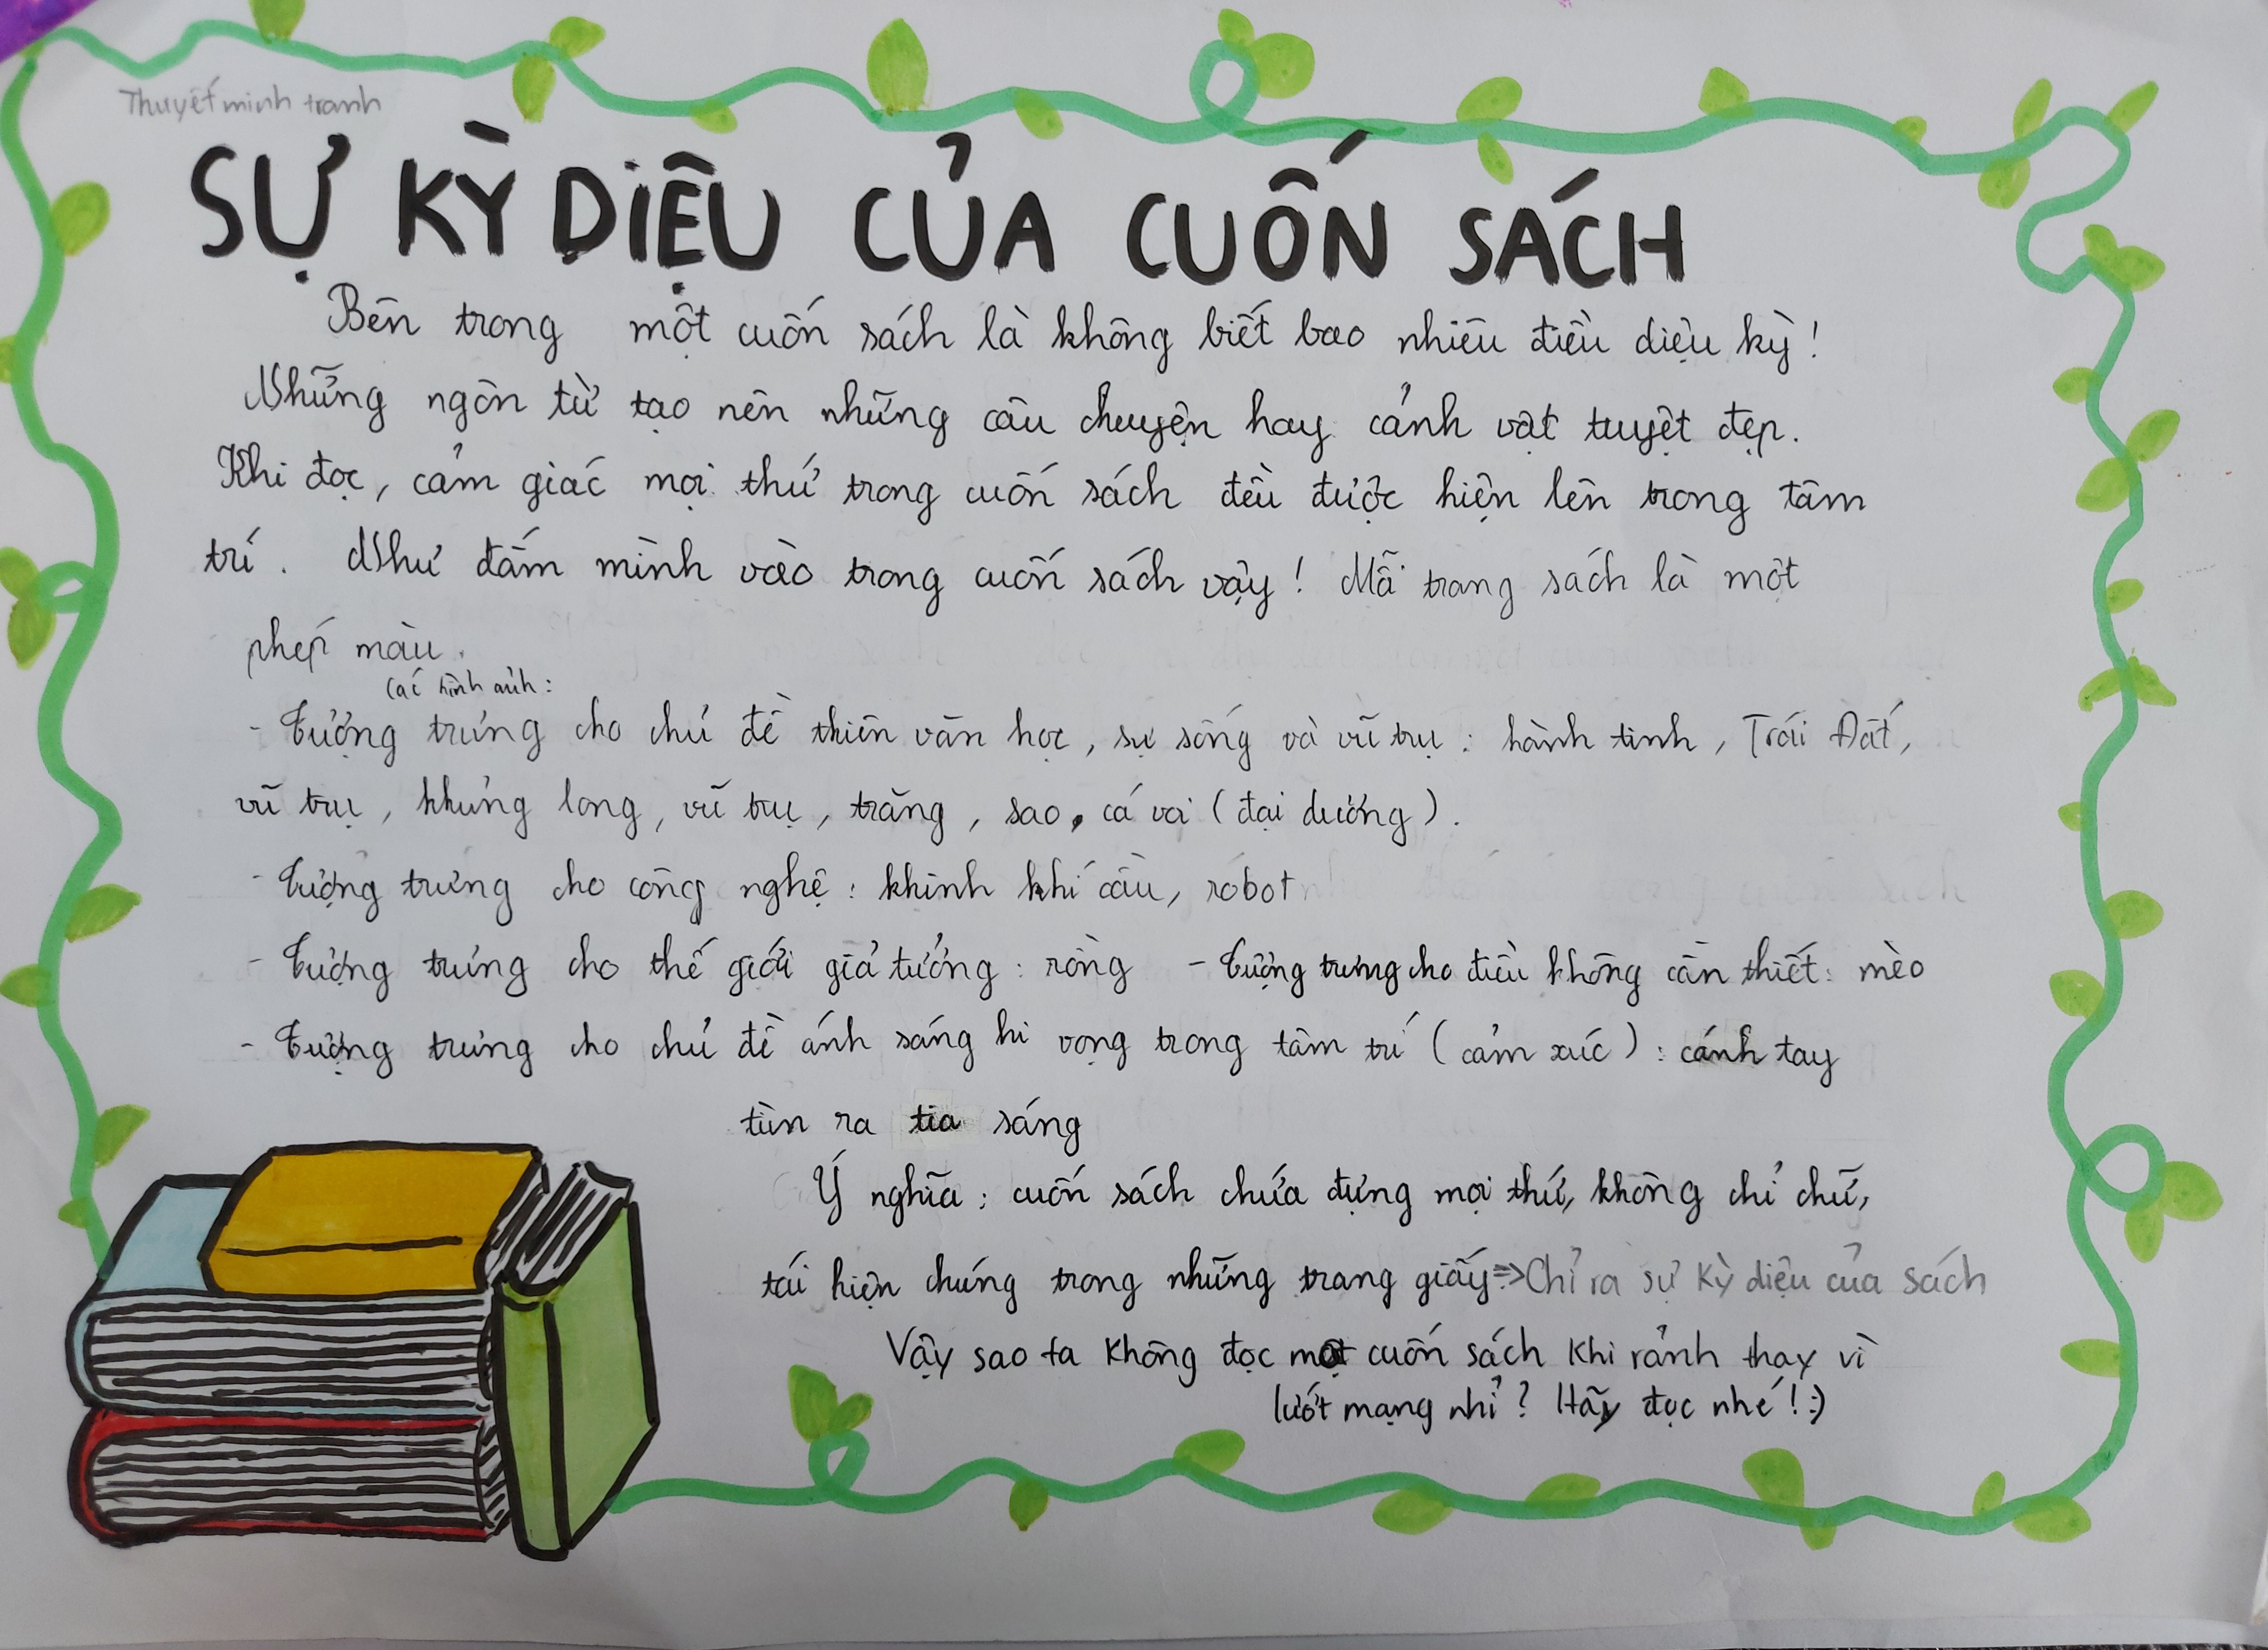 Thuyết minh tranh
SỰ KỲ DIỆU CỦA CUỐN SÁCH
Bên trong một cuốn sách là không biết bao nhiêu điều diệu kỳ!
Những ngôn từ tạo nên những câu chuyện hay cảnh vật tuyệt đẹp.
Khi đọc, cảm giác mọi thứ trong cuốn sách đều được hiện lên trong tâm
trí. Như đắm mình vào trong cuốn sách vậy! Mỗi trang sách là một
phép màu.
Các hình ảnh:
- Tượng trưng cho chủ đề thiên văn học, sự sống và vũ trụ: hành tinh, Trái Đất,
vũ trụ, khủng long, vũ trụ, trăng, sao, cá voi (đại dương).
- Tượng trưng cho công nghệ: khinh khí cầu, robot
- Tượng trưng cho thế giới giả tưởng: rồng - Tượng trưng cho điều không cần thiết: mèo
- Tượng trưng cho chủ đề ánh sáng hi vọng trong tâm trí (cảm xúc): cánh tay
tùn ra tia sáng
Ý nghĩa: cuốn sách chứa đựng mọi thứ, không chỉ chữ,
tái hiện chúng trong những trang giấy => Chỉ ra sự kỳ diệu của sách
Vậy sao ta không đọc một cuốn sách khi rảnh thay vì
lướt mạng nhỉ? Hãy đọc nhé! :)